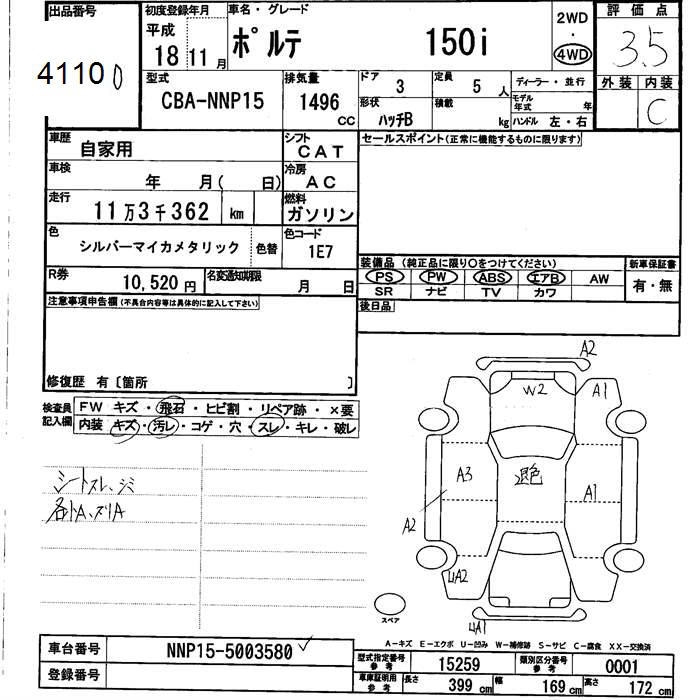 出品番号
41100
初度登録年月
平成
18 11 月
車名・グレード
ポルテ 150i
2WD
・
4WD
評価点
3.5
外装 内装
C
型式
CBA-NNP15
排気量
1496
CC
ドア 3
定員 5 人
ディーラー・並行
形状 ハッチB
積載 kg
モデル年式 年
ハンドル 左・右
車歴 自家用
シフト CAT
セールスポイント(正常に機能するものに限ります)
車検 年 月( 日)
冷房 AC
走行 11万3千362 km
燃料 ガソリン
色 シルバーマイカメタリック 色替
色コード 1E7
R券 10,520円
名変通知期限 月 日
装備品 (純正品に限り○をつけてください)
PS PW ABS エアB AW
SR ナビ TV カワ
新車保証書
有・無
後日品
注意事項申告欄(不具合内容等は具体的に記入して下さい)
修復歴 有〔箇所 〕
検査員記入欄
FW キズ・飛石・ヒビ割・リペア跡・×要
内装 キズ・汚レ・コゲ・穴・スレ・キレ・破レ
シートスレ、シミ
各トA、スリA
A2
W2
A1
A3
退色
A1
A2
4A2
4A1
スペア
A-キズ E-エクボ U-凹み W-補修跡 S-サビ C-腐食 XX-交換済
車台番号 NNP15-5003580
登録番号
型式指定番号 参考 15259
類別区分番号 参考 0001
車庫証明用 参考
長さ 399 cm
幅 169 cm
高さ 172 cm